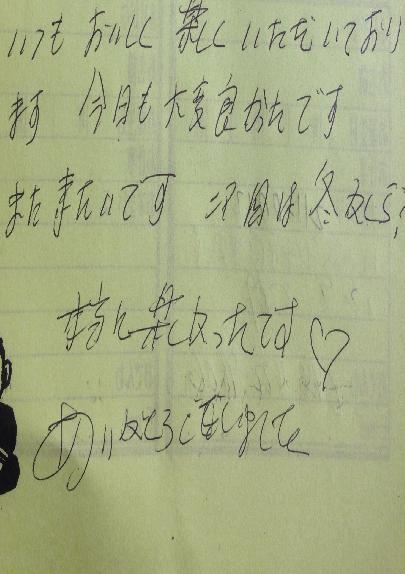 いつも おいしく 楽しく いただいており
ます 今日も 大変良かったです
また来たいです 次回は冬かしら?
本当に楽しかったです♡
ありがとうございました